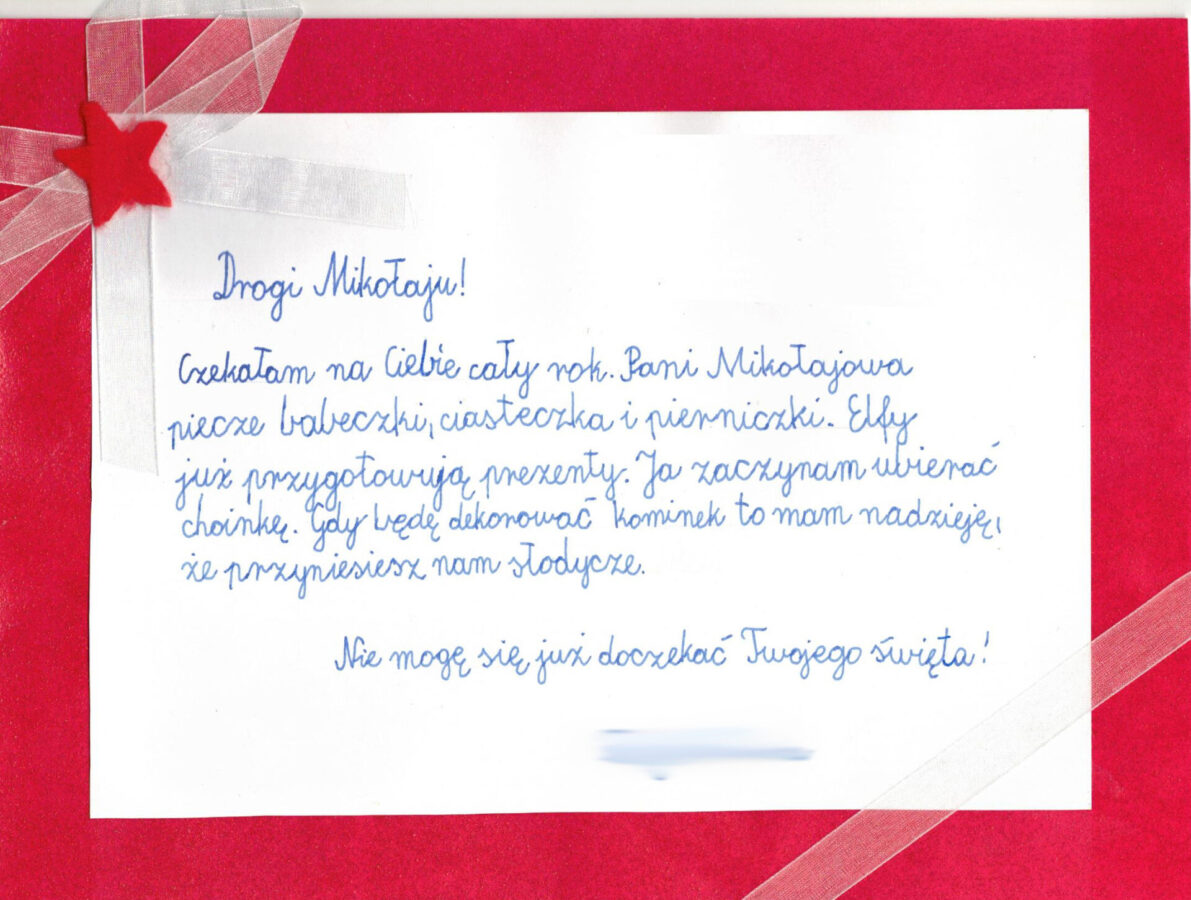 Drogi Mikołaju!
Czekałam na Ciebie cały rok. Pani Mikołajowa
piecze babeczki, ciasteczka i pierniczki. Elfy
już przygotowują prezenty. Ja zaczynam ubierać
choinkę. Gdy będę dekorować kominek to mam nadzieję,
że przyniesiesz nam słodycze.
Nie mogę się już doczekać Twojego święta!